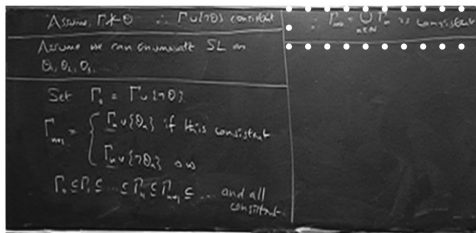 Assume Γ ⊬ θ ∴ Γ∪{¬θ} consistent
Assume we can enumerate SL as
θ₁, θ₂, θ₃...
Set Γ₀ = Γ∪{¬θ}
Γₙ₊₁ = { Γₙ∪{θₙ} if this consistent
Γₙ∪{¬θₙ} o/w
Γ₀ ⊆ Γ₁ ⊆ ... ⊆ Γₙ ⊆ Γₙ₊₁ ⊆ ... and all
consistent.
∴ Γ∞ = ⋃ Γₙ is consistent
n∈ℕ